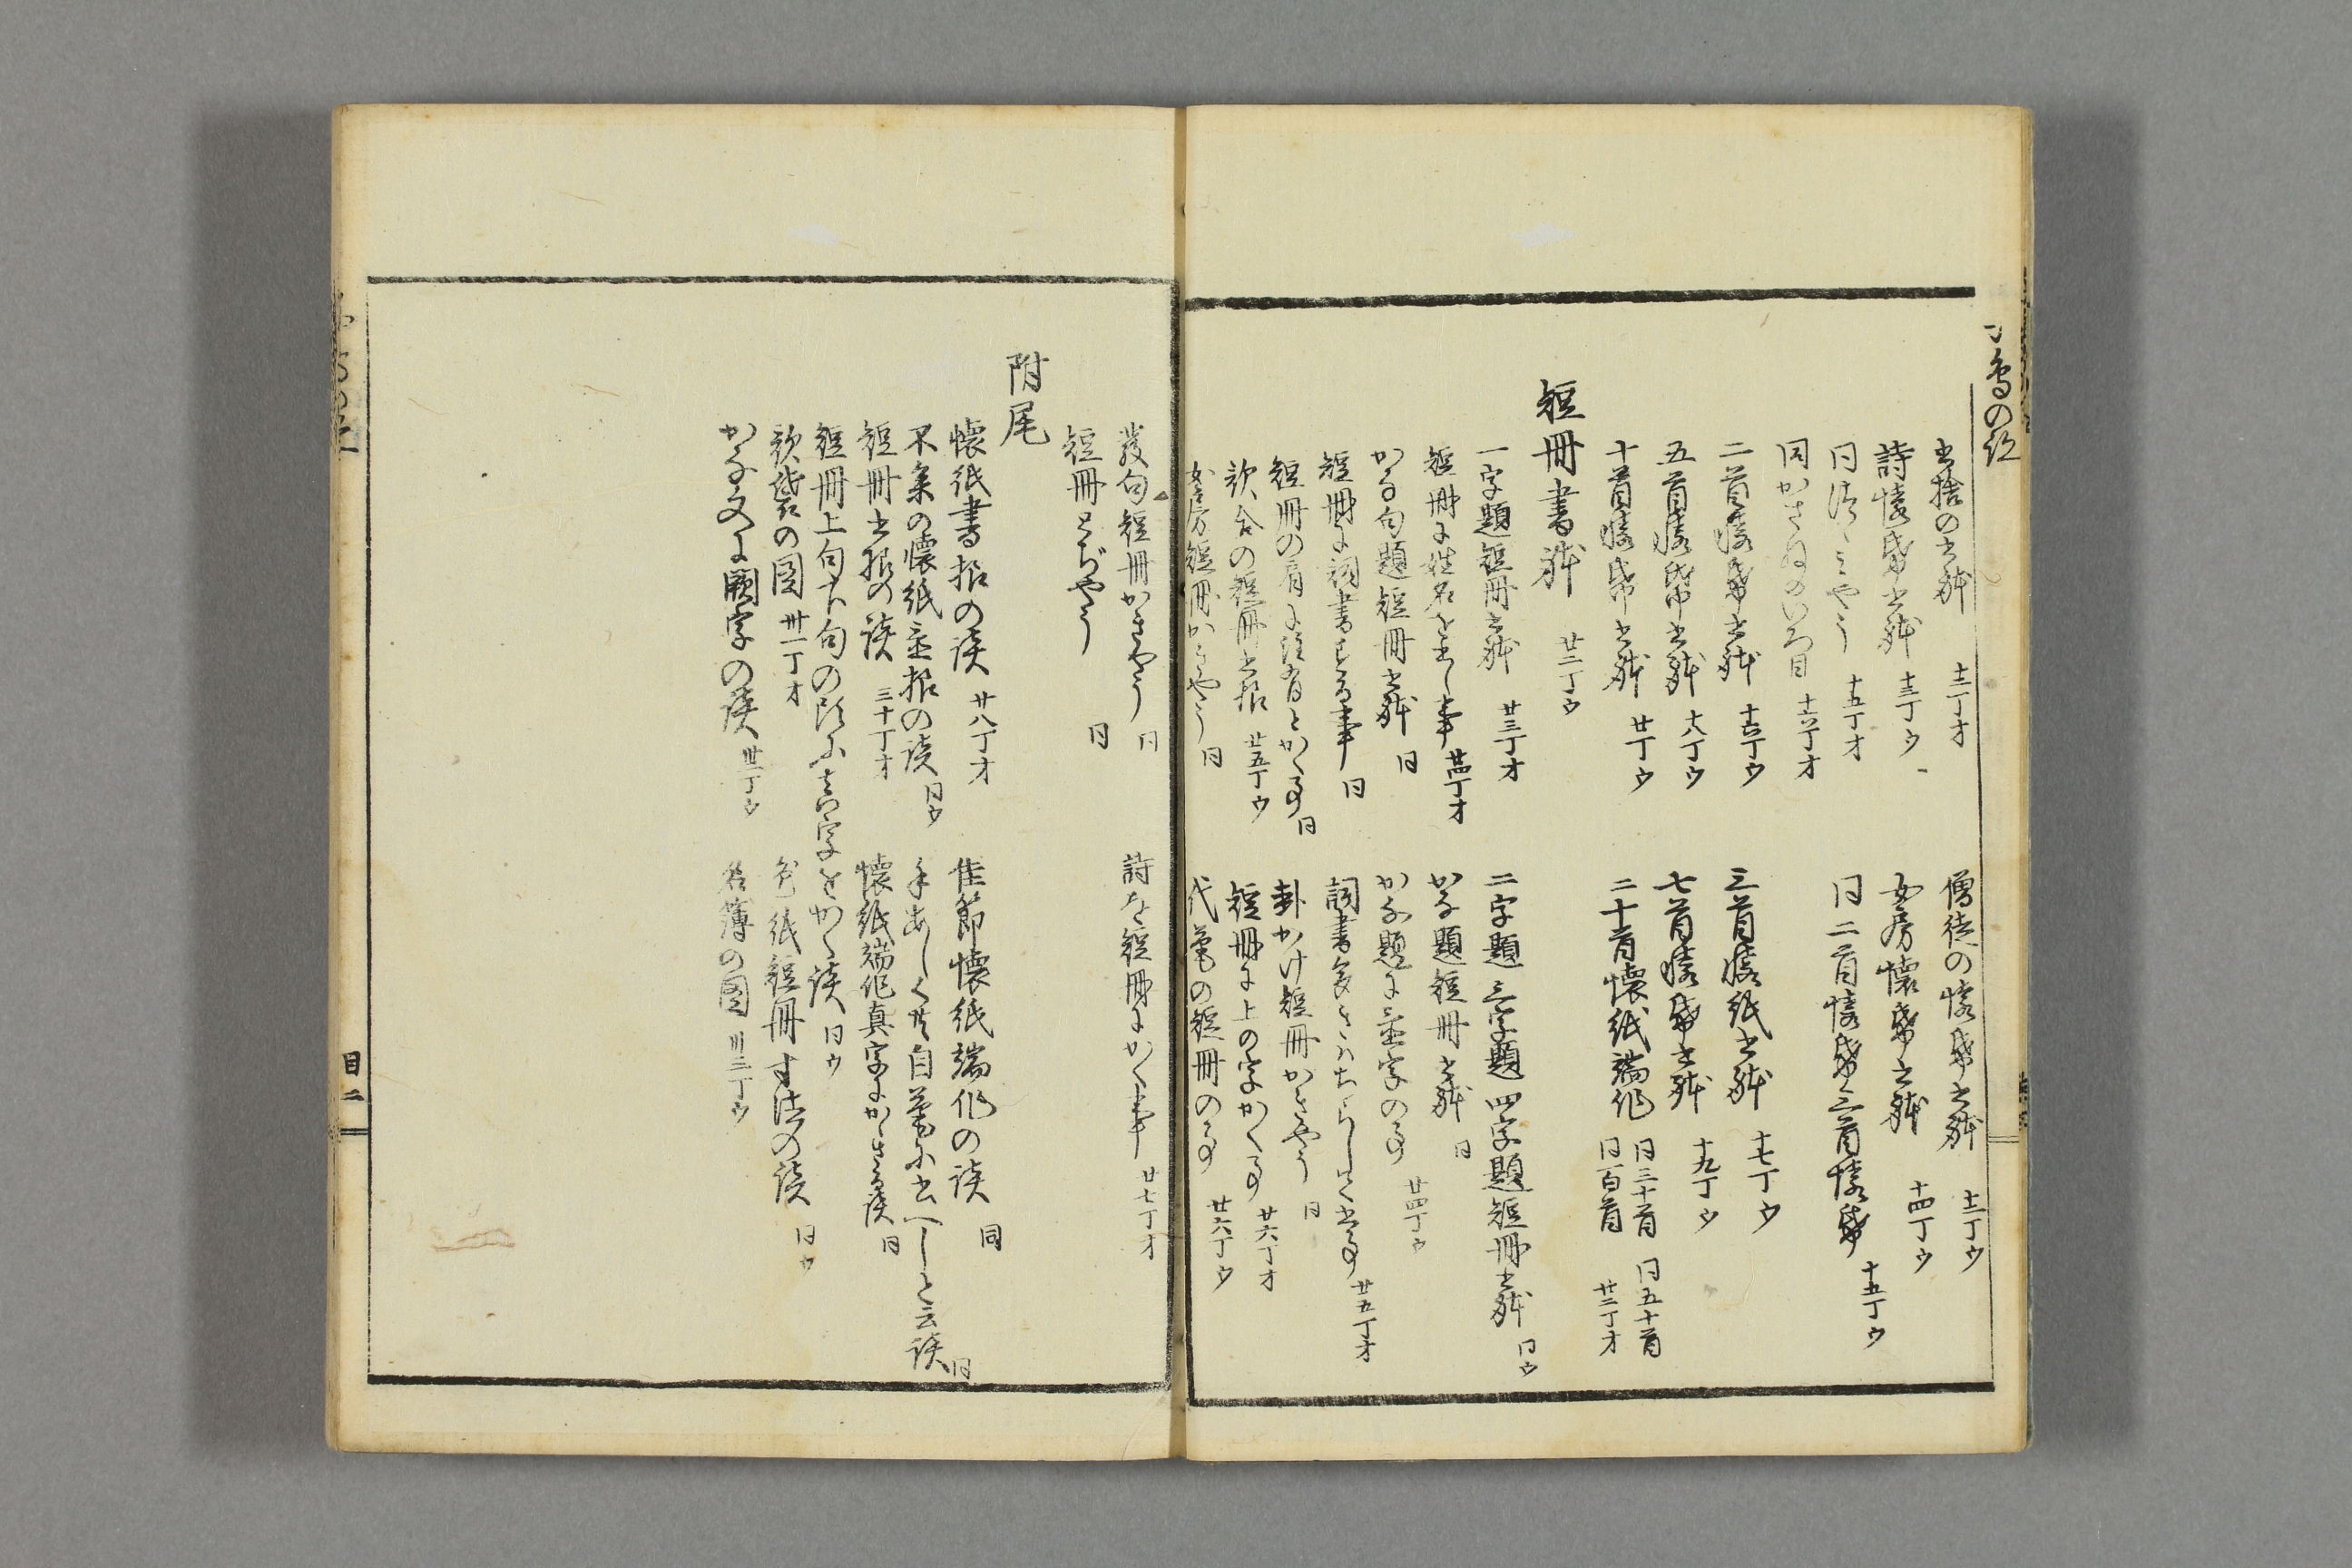 書捨の書躰 十二丁オ
僧徒の懐紙書躰 十二丁ウ
詩懐紙書躰 十三丁ウ
女房懐紙書躰 十四丁ウ
同 つゝみやう 十五丁オ
同二首懐紙三首懐紙 十五丁ウ
同かさねのいろ目 十六丁オ
二首懐紙書躰 十六丁ウ
三首懐紙書躰 十七丁ウ
五首懐紙書躰 十八丁ウ
七首懐紙書躰 十九丁ウ
十首懐紙書躰 廿丁ウ
二十首懐紙端作 同三十首 同五十首 同百首 廿二丁オ
短冊書躰 廿二丁ウ
一字題短冊書躰 廿三丁オ
二字題三字題四字題短冊書躰 同ウ
短冊に姓名を書し事 廿四丁オ
かな題短冊書躰 同
かな句題短冊書躰 同
かな題に重字の事 廿四丁ウ
短冊に詞書する事 同
詞書多きはちらして書事 廿五丁オ
短冊の肩に注有とかく事 同
卦かけ短冊かきやう 同
歌合の短冊書振 廿五丁ウ
短冊に上の字かく事 廿六丁オ
女房短冊かきやう 同
代筆の短冊の事 廿六丁ウ
発句短冊かきやう 同
詩を短冊にかく事 廿七丁オ
短冊とぢやう 同
附尾
懐紙書振の談 廿八丁オ
佳節懐紙端作の談 同
不参の懐紙重振の談 同ウ
手あしく共自筆に書へしと云談 同
短冊書振の談 三十丁オ
懐紙端作真字にかきさる談 同
短冊上句下句の頭に真字をかく談 同ウ
歌袋の図 卅一丁オ
色紙短冊寸法の談 同ウ
かな文に闕字の談 卅二丁ウ
名簿の図 卅三丁ウ
目二